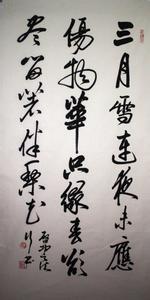 三月雪連夜未應
傷物華只緣春欲
尽留著伴梨花